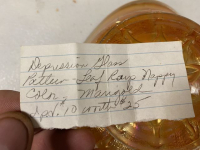 Depression Glass
Pattern - Inf Ray Nappy
Color, Marigold
$10 worth $25